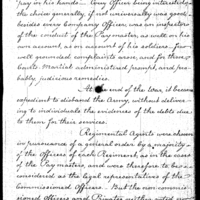 pay in his hands — Every Officer being interested in
the choice generally, if not universally was good,
besides every Company Officer, was an inspector
of the conduct of the Paymaster, as well on his
own account, as on account of his soldiers, from
well grounded complaints arose, and for them
Courts Martial administered prompt, and pro-
bably, judicious remedies.
At the end of the War, it became
expedient to disband the Army, without deliver-
ing to individuals the evidences of the debts due
to them for their services.
Regimental Agents were chosen
in pursuance of a general order by a majority
of the Officers of each Regiment, as in the case
of the Pay masters, and were therefore to be
considered as the legal representatives of the
Commissioned Officers. But the non-commis-
sioned officers and Privates